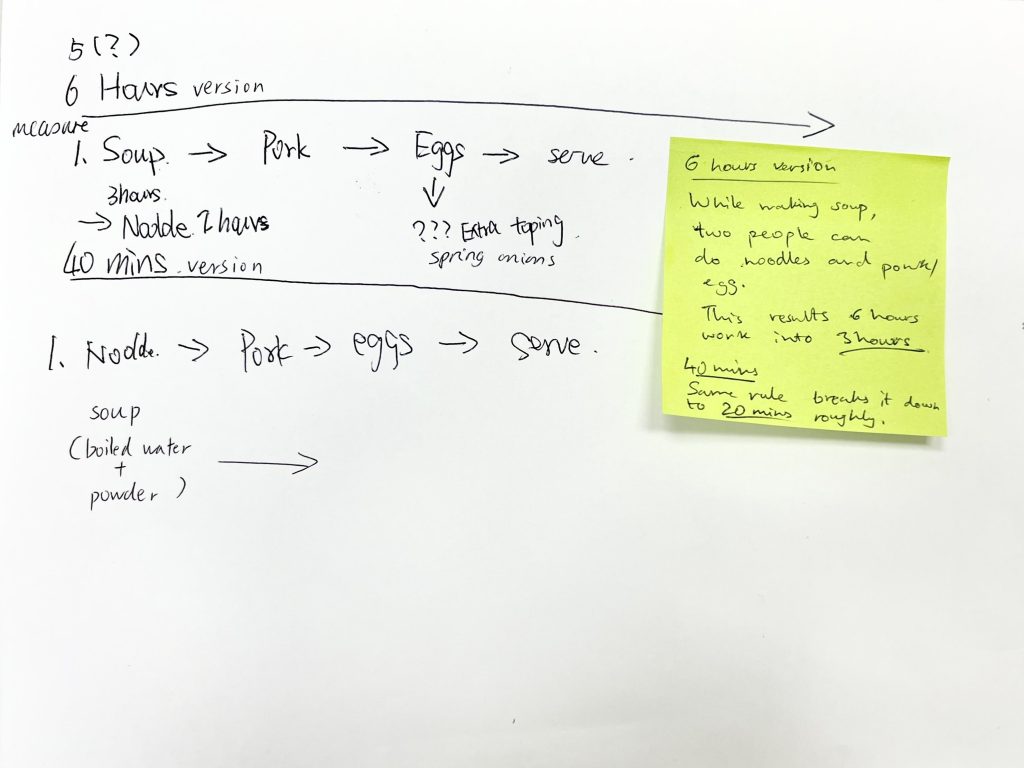 5(?)
6 Hours version
measure
1. Soup. → Pork → Eggs → serve.
3hours.
→ Nodde. 2 hours
??? Extra toping.
spring onions
40 mins version
1. Nodde. → Pork → eggs → serve.
soup
(boiled water
+
powder)
→
6 hours version
While making soup,
two people can
do noodles and
egg.
This results 6 hours
work into 3 hours.
40 mins
Same rule breaks it down
to 20 mins roughly.